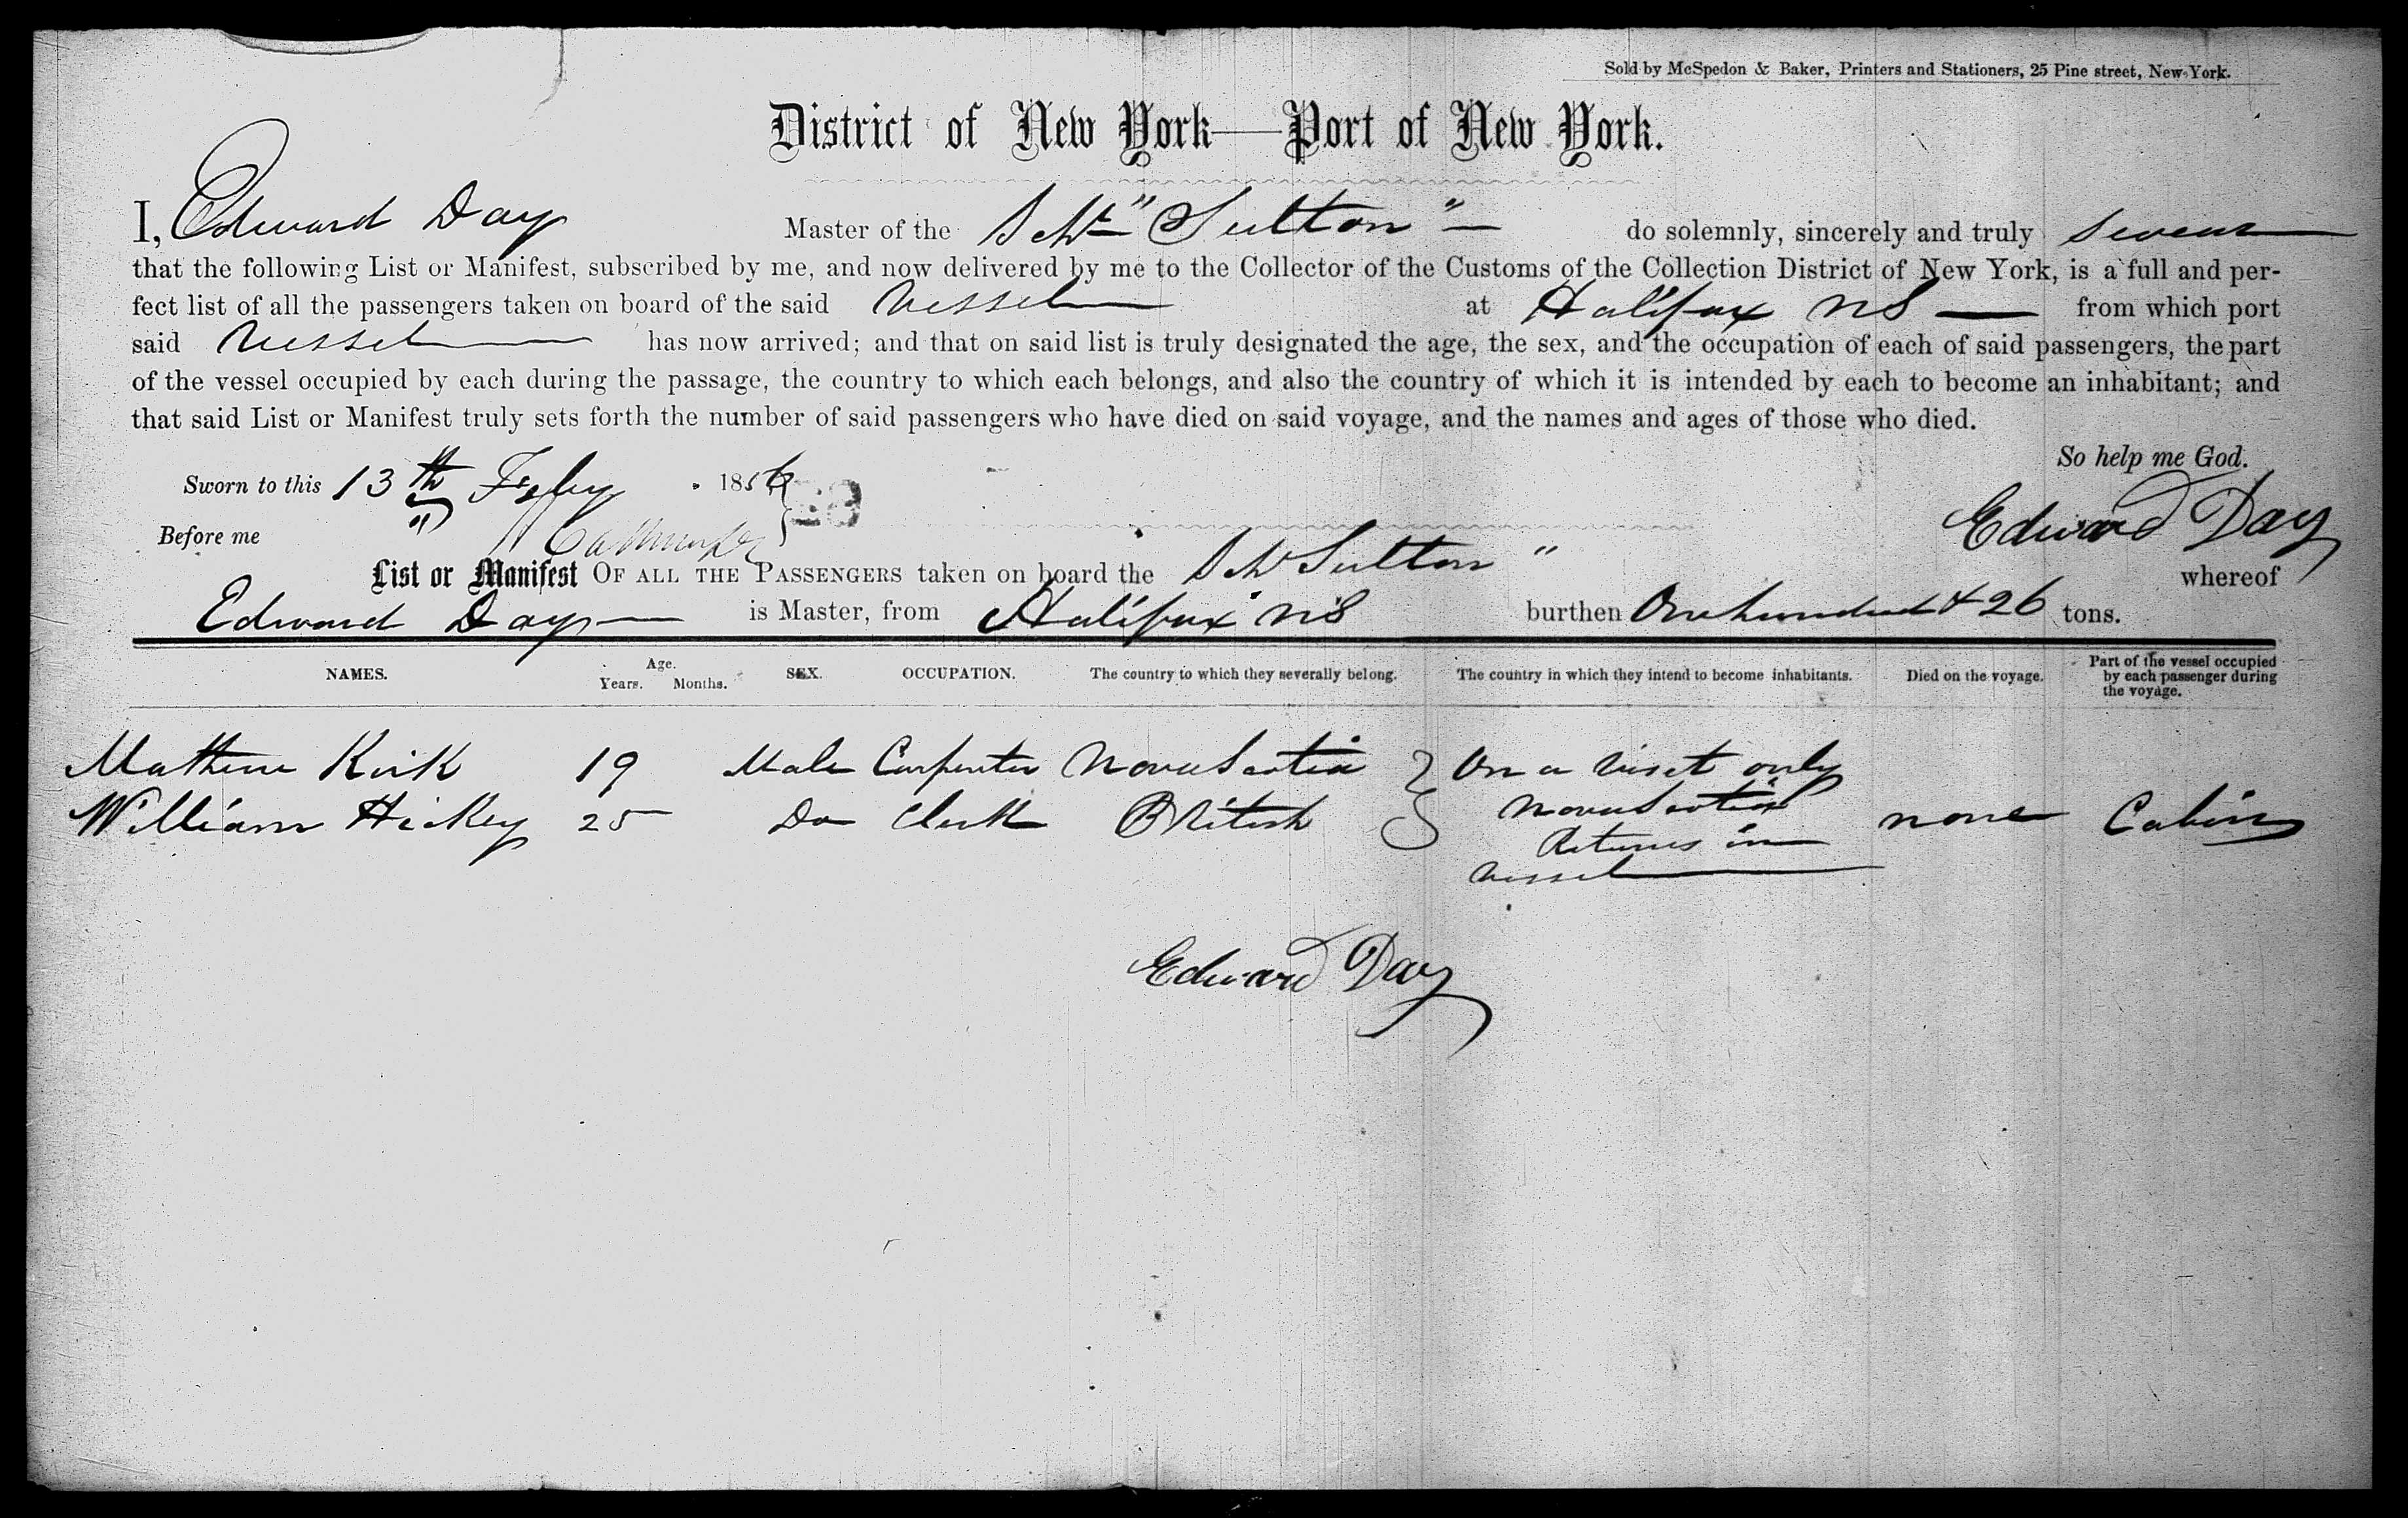 Sold by McSpedon & Baker, Printers and Stationers, 25 Pine street, New-York.
District of New York—Port of New York.
I, Edward Day Master of the Schr "Sutton" — do solemnly, sincerely and truly swear
that the following List or Manifest, subscribed by me, and now delivered by me to the Collector of the Customs of the Collection District of New York, is a full and per-
fect list of all the passengers taken on board of the said Vessel at Halifax NS — from which port
said Vessel has now arrived; and that on said list is truly designated the age, the sex, and the occupation of each of said passengers, the part
of the vessel occupied by each during the passage, the country to which each belongs, and also the country of which it is intended by each to become an inhabitant; and
that said List or Manifest truly sets forth the number of said passengers who have died on said voyage, and the names and ages of those who died.
So help me God.
Sworn to this 13th Feby 1856 28
Edward Day
Before me
List or Manifest OF ALL THE PASSENGERS taken on board the Schr Sutton " whereof
Edward Day — is Master, from Halifax NS burthen One hundred & 26 tons.
NAMES. Age. Years. Months. SEX. OCCUPATION. The country to which they severally belong. The country in which they intend to become inhabitants. Died on the voyage. Part of the vessel occupied by each passenger during the voyage.
Mathew Kirk 19 Male Carpenter Nova Scotia On a visit only
William Hickey 25 Do Clerk British Nova Scotia none Cabin
Returns in
Vessel
Edward Day